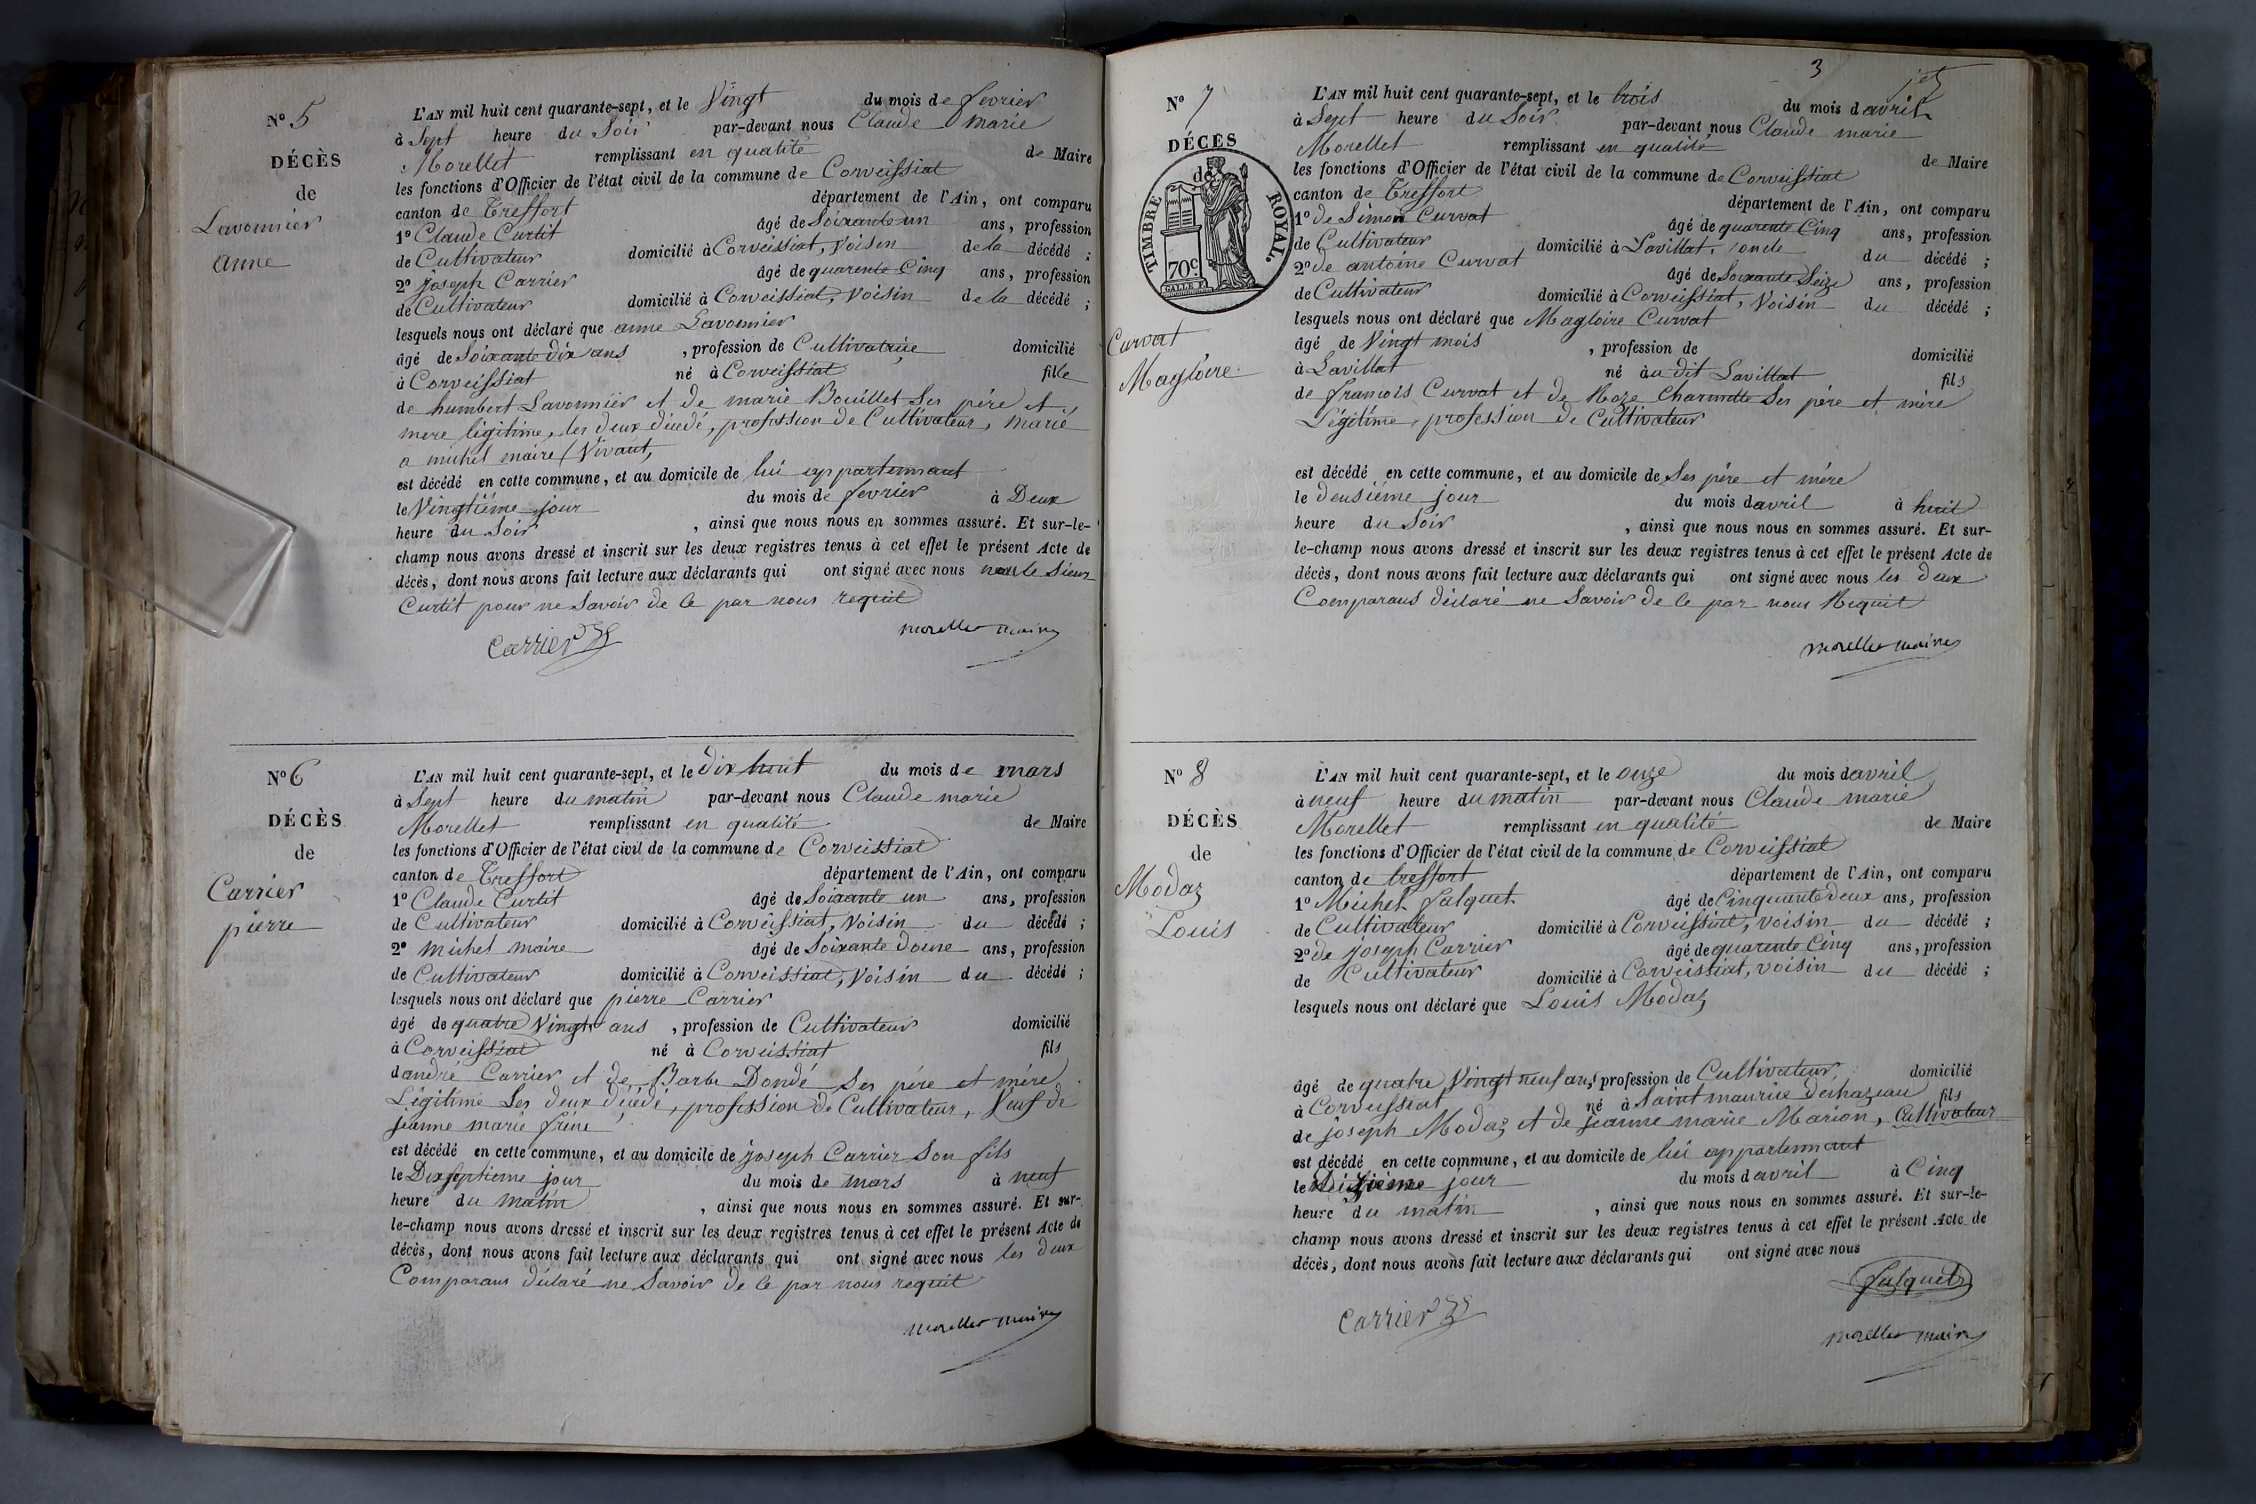 N° 5
DÉCÈS
de
Lavonnier
Anne
L'AN mil huit cent quarante-sept, et le Vingt du mois de fevrier
à Sept heure du Soir par-devant nous Claude Marie
Morellet remplissant en qualité de Maire
les fonctions d'Officier de l'état civil de la commune de Corveissiat
canton de Treffort département de l'Ain, ont comparu
1° Claude Curtit âgé de Soixante un ans, profession
de Cultivateur domicilié à Corveissiat, Voisin de la décédé ;
2° joseph Carrier âgé de quarente Cinq ans, profession
de Cultivateur domicilié à Corveissiat, Voisin de la décédé ;
lesquels nous ont déclaré que anne Lavonnier
âgé de Soixante dix ans , profession de Cultivatrice domicilié
à Corveissiat né à Corveissiat fille
de humbert Lavonnier et de marie Bouillet Ses père et
mere légitime, les deux décédé, profession de Cultivateur, marié
a michel maire Vivant,
est décédé en cette commune, et au domicile de lui appartennant
le Vingtième jour du mois de fevrier à Deux
heure du Soir , ainsi que nous nous en sommes assuré. Et sur-le-
champ nous avons dressé et inscrit sur les deux registres tenus à cet effet le présent Acte de
décès, dont nous avons fait lecture aux déclarants qui ont signé avec nous non le Sieur
Curtit pour ne Savoir de Ce par nous requit
Carrier
morellet maire
N° 6
DÉCÈS
de
Carrier
pierre
L'AN mil huit cent quarante-sept, et le dix huit du mois de mars
à Sept heure du matin par-devant nous Claude marie
Morellet remplissant en qualité de Maire
les fonctions d'Officier de l'état civil de la commune de Corveissiat
canton de Treffort département de l'Ain, ont comparu
1° Claude Curtit âgé de Soixante un ans, profession
de Cultivateur domicilié à Corveissiat, Voisin du décédé ;
2° michel maire âgé de Soixante douze ans, profession
de Cultivateur domicilié à Corveissiat, Voisin du décédé ;
lesquels nous ont déclaré que pierre Carrier
âgé de quatre Vingt ans , profession de Cultivateur domicilié
à Corveissiat né à Corveissiat fils
d andré Carrier et de Barbe Dondé Ses père et mère
Légitime Les deux décédé, profession de Cultivateur, Veuf de
jeanne marie frène
est décédé en cette commune, et au domicile de joseph Carrier Son fils
le Dixseptieme jour du mois de mars à neuf
heure du matin , ainsi que nous nous en sommes assuré. Et sur-
le-champ nous avons dressé et inscrit sur les deux registres tenus à cet effet le présent Acte de
décès, dont nous avons fait lecture aux déclarants qui ont signé avec nous les deux
Comparans déclaré ne Savoir de Ce par nous requit
morellet maire
3
N° 7
DÉCÈS
de
TIMBRE ROYAL.
70 c.
Curvat
Magloire
L'AN mil huit cent quarante-sept, et le trois du mois d avril
à Sept heure du Soir par-devant nous Claude marie
Morellet remplissant en qualité de Maire
les fonctions d'Officier de l'état civil de la commune de Corveissiat
canton de Treffort département de l'Ain, ont comparu
1° de Simon Curvat âgé de quarente Cinq ans, profession
de Cultivateur domicilié à Lavillat, oncle du décédé ;
2° de antoine Curvat âgé de Soixante Seize ans, profession
de Cultivateur domicilié à Corveissiat, Voisin du décédé ;
lesquels nous ont déclaré que Magloire Curvat
âgé de Vingt mois , profession de domicilié
à Lavillat né à u dit Lavillat fils
de francois Curvat et de Roze Charnette Ses père et mère
Légitime, profession de Cultivateur
est décédé en cette commune, et au domicile de Ses père et mère
le deusième jour du mois d avril à huit
heure du Soir , ainsi que nous nous en sommes assuré. Et sur-
le-champ nous avons dressé et inscrit sur les deux registres tenus à cet effet le présent Acte de
décès, dont nous avons fait lecture aux déclarants qui ont signé avec nous les deux
Comparans déclaré ne Savoir de Ce par nous Requit
morellet maire
N° 8
DÉCÈS
de
Modaz
Louis
L'AN mil huit cent quarante-sept, et le onze du mois d avril
à neuf heure du matin par-devant nous Claude marie
Morellet remplissant en qualité de Maire
les fonctions d'Officier de l'état civil de la commune de Corveissiat
canton de treffort département de l'Ain, ont comparu
1° Michel falquet âgé de Cinquante deux ans, profession
de Cultivateur domicilié à Corveissiat, voisin du décédé ;
2° de joseph Carrier âgé de quarente Cinq ans, profession
de Cultivateur domicilié à Corveissiat, voisin du décédé ;
lesquels nous ont déclaré que Louis Modaz
âgé de quatre Vingt neuf ans, profession de Cultivateur domicilié
à Corveissiat né à Saint maurice deshazeau fils
de joseph Modaz et de jeanne marie Marion, Cultivateur
est décédé en cette commune, et au domicile de lui appartennant
le jour du mois d avril à Cinq
heure du matin , ainsi que nous nous en sommes assuré. Et sur-le-
champ nous avons dressé et inscrit sur les deux registres tenus à cet effet le présent Acte de
décès, dont nous avons fait lecture aux déclarants qui ont signé avec nous
falquet
Carrier
morellet maire